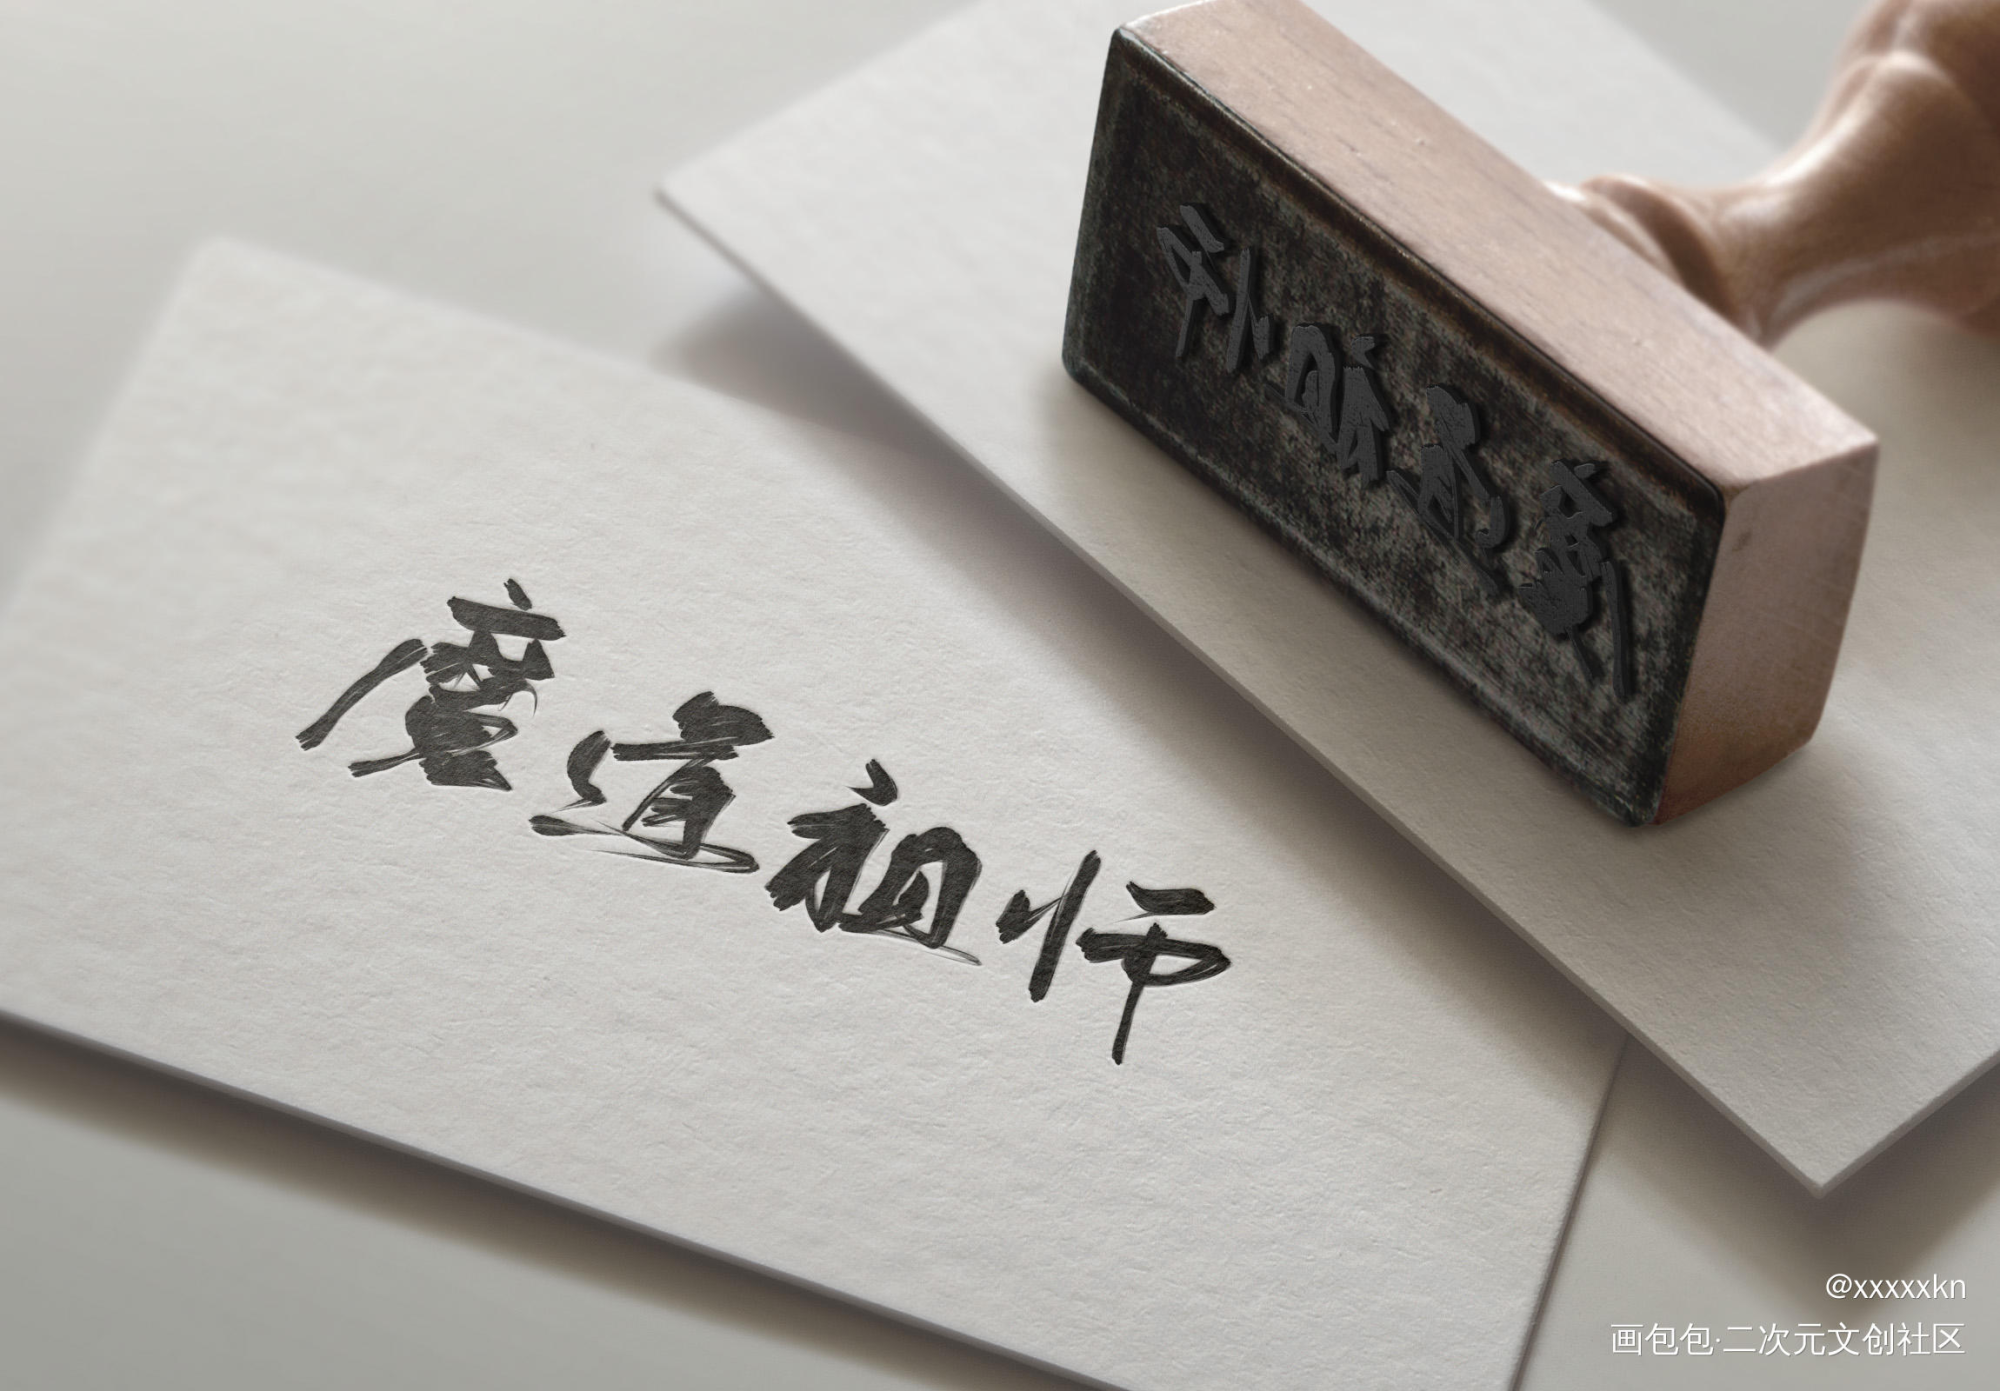 魔道祖师
@xxxxxkn
画包包·二次元文创社区